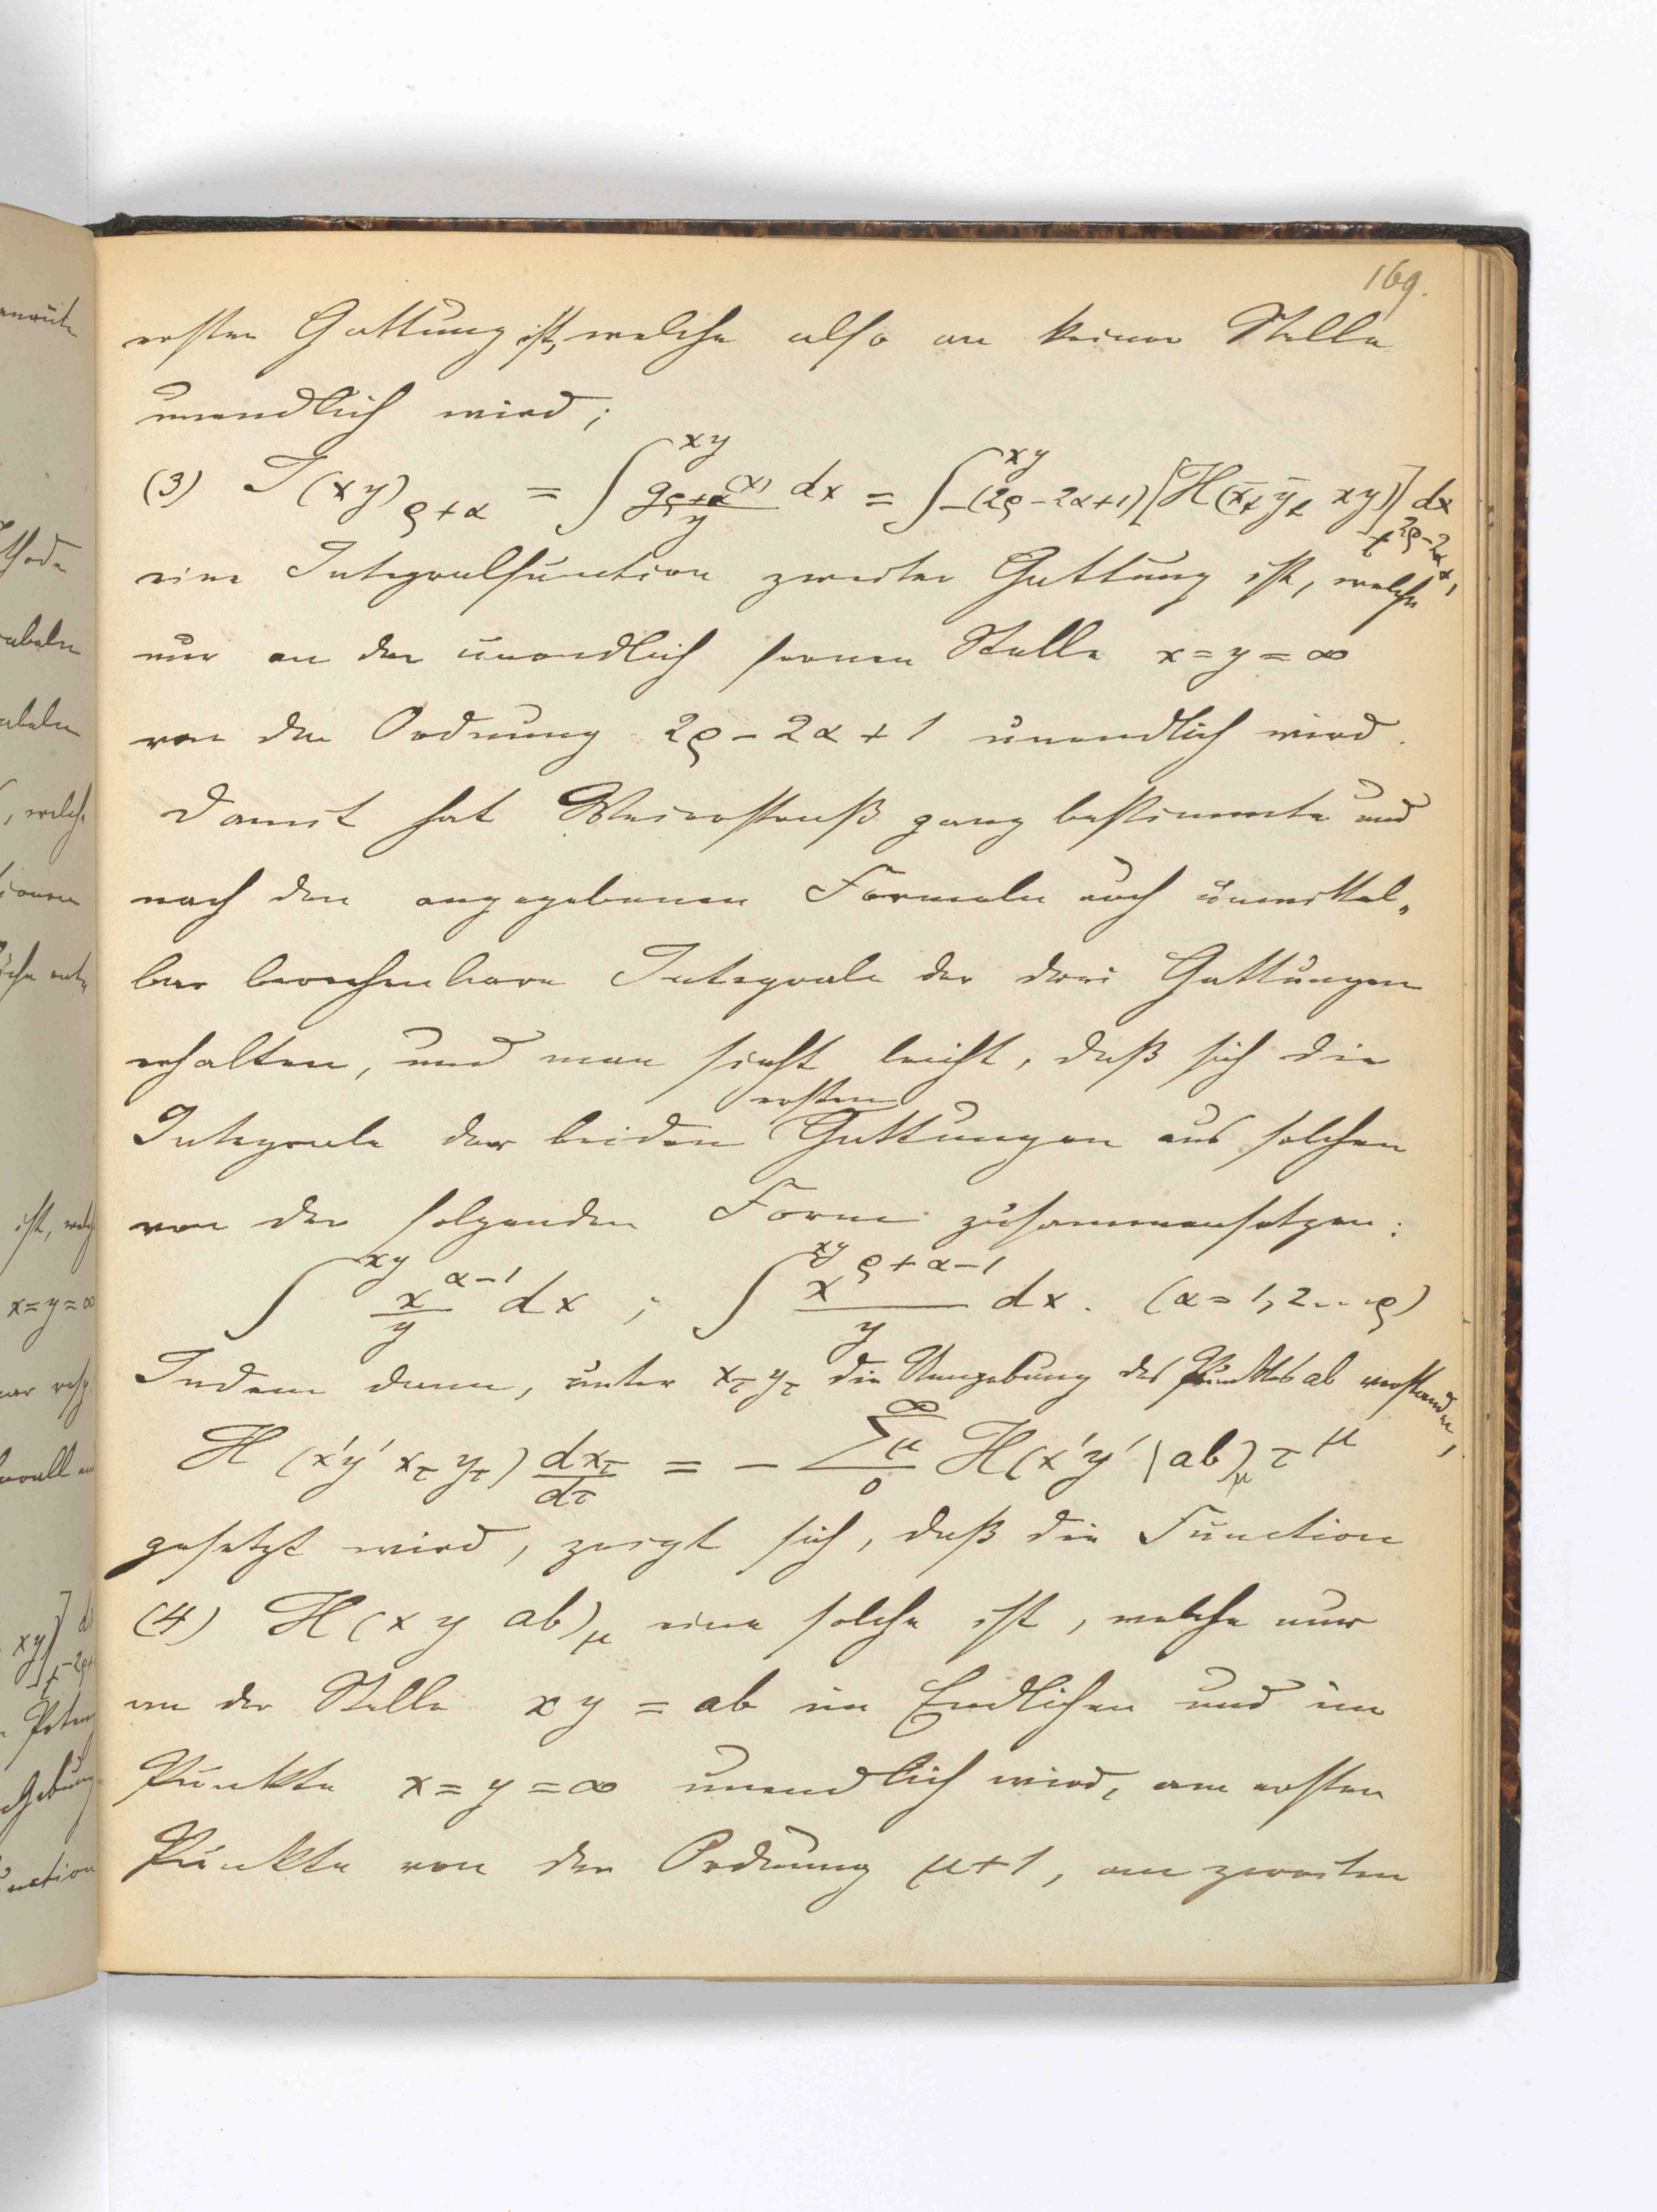 169.
ersten Gattung ist, welche also an keiner Stelle
unendlich wird;
(3) J(xy)ρ+α = ∫^xy gρ+α(x)/y dx = ∫^xy -(2ρ-2α+1)[H(x̄t ȳt xy)] t^2ρ-2α+1 dx
eine Integralfunction zweiter Gattung ist, welche
nur an der unendlich fernen Stelle x=y=∞
von der Ordnung 2ρ-2α+1 unendlich wird.
Damit hat Weierstraß ganz bestimmte und
nach den angegebenen Formeln auch unmittel„
bar berechenbare Integrale der drei Gattungen
erhalten, und man sieht leicht, daß sich die
ersten
Integrale der beiden Gattungen aus solchen
von der folgenden Form zusammensetzen:
∫^xy x^α-1/y dx ; ∫^xy x^ρ+α-1/y dx. (α=1,2...ρ)
Indem dann, unter xτ yτ die Umgebung des Punktes ab verstanden,
H(x'y' xτ yτ) dxτ/dτ = - ∑μ 0^∞ H(x'y' | ab)μ τ^μ
gesetzt wird, zeigt sich, daß die Function
(4) H(xy ab)μ eine solche ist, welche nur
an der Stelle xy = ab im Endlichen und im
Punkte x=y=∞ unendlich wird, am ersten
Punkte von der Ordnung μ+1, am zweiten
ist, welch
x=y=∞